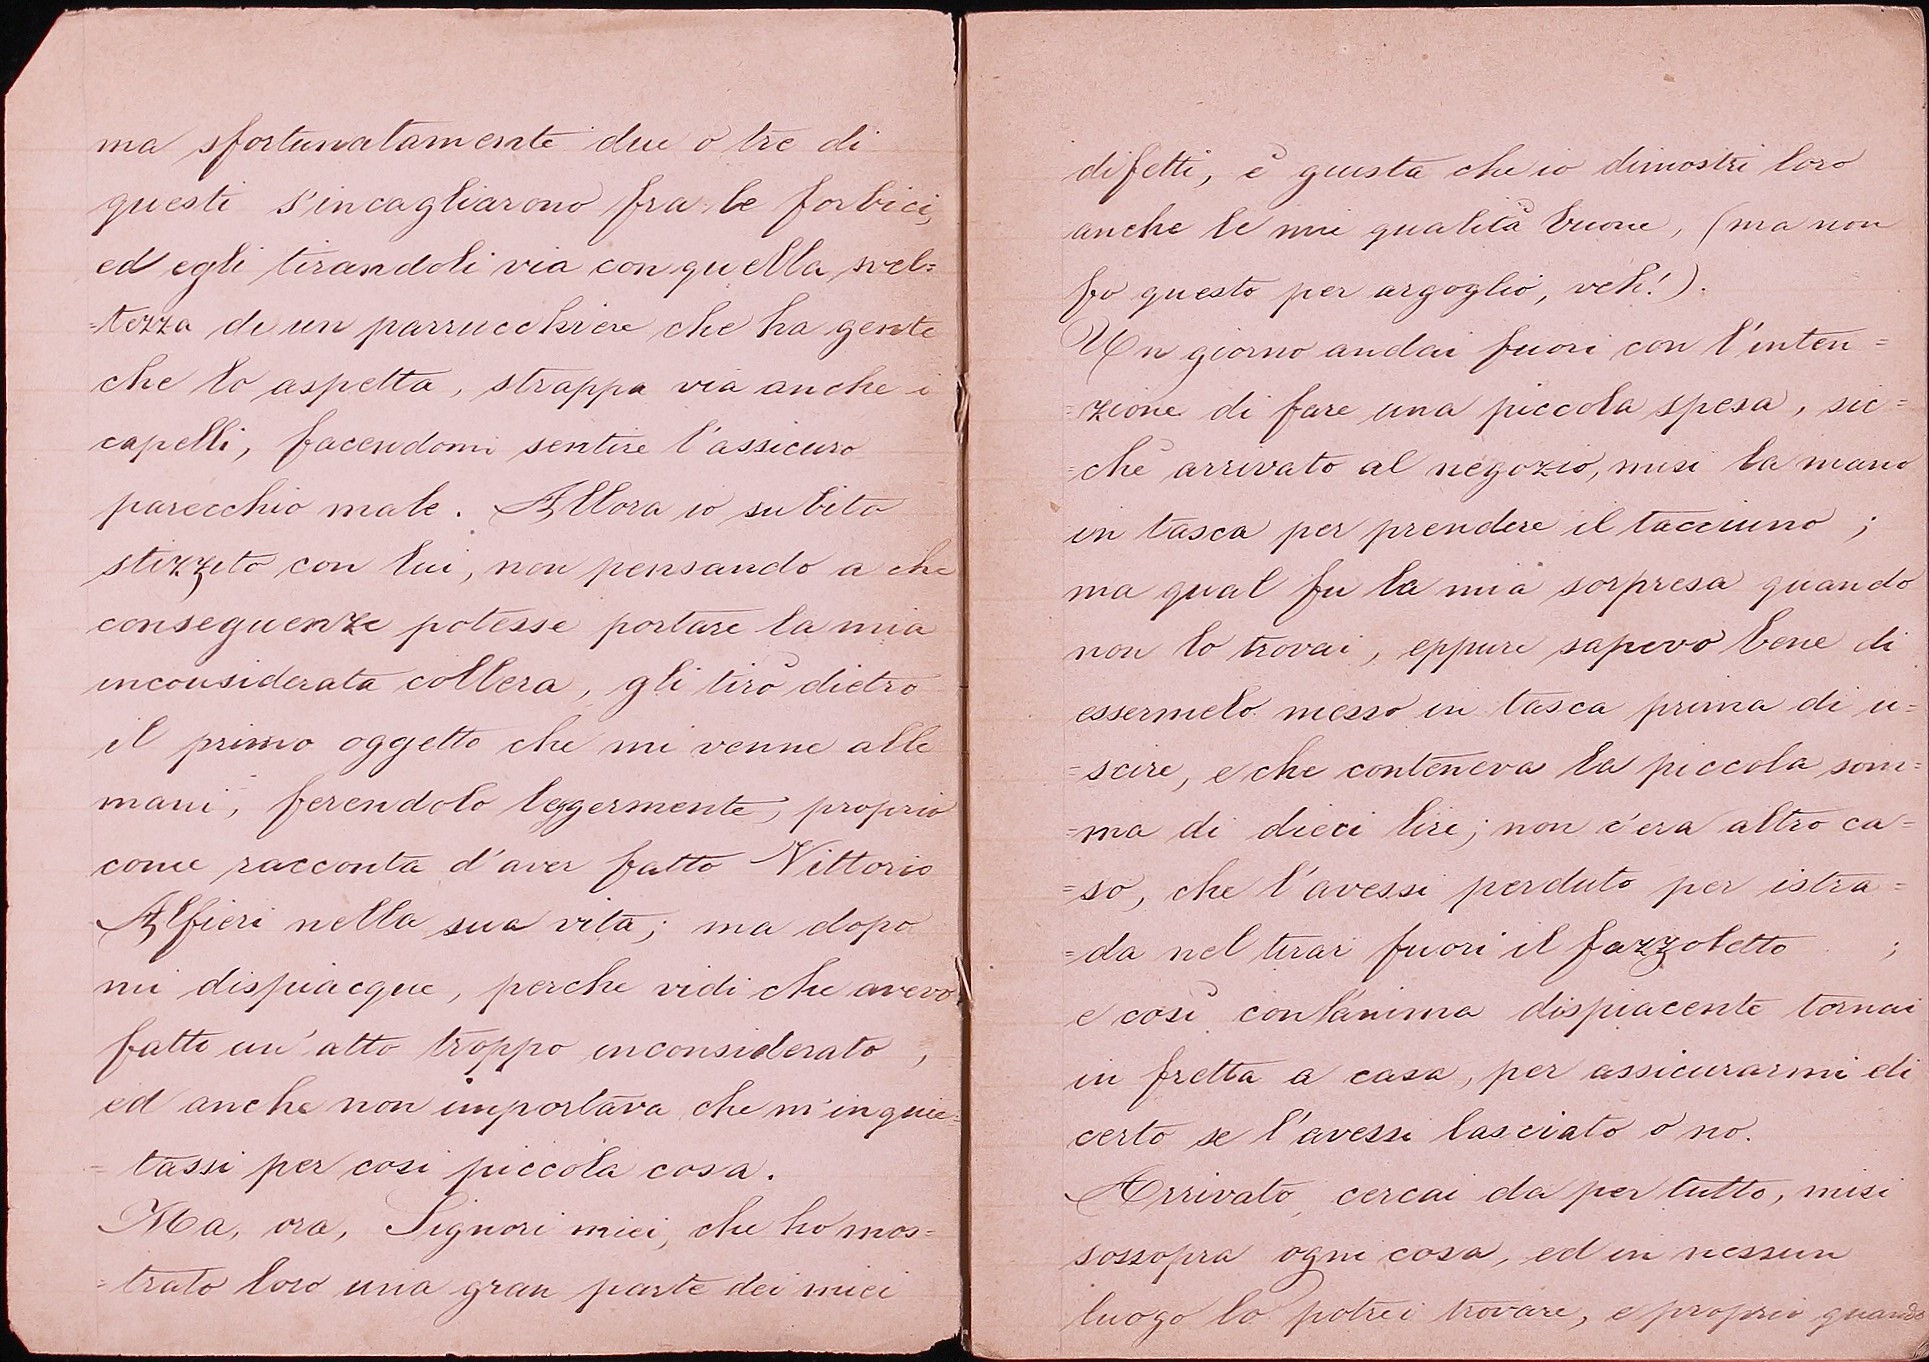 ma sfortunatamente due o tre di
questi s'incagliarono fra le forbici,
ed egli tirandoli via con quella svel=
=tezza di un parrucchiere che ha gente
che lo aspetta, strappa via anche i
capelli, facendomi sentire l'assicuro
parecchio male. Allora io subito
stizzito con lui, non pensando a che
conseguenze potesse portare la mia
inconsiderata collera, gli tirò dietro
il primo oggetto che mi venne alle
mani, ferendolo leggermente, proprio
come racconta d'aver fatto Vittorio
Alfieri nella sua vita; ma dopo
mi dispiacque, perche vidi che avevo
fatte un'atto troppo inconsiderato,
ed anche non importava che m'inquie=
=tassi per cosi piccola cosa.
Ma, ora, Signori miei, che ho mos=
=trato loro una gran parte dei miei
difetti, è giusta che io dimostri loro
anche le mie qualità buone, (ma non
fo questo per argoglio, veh!).
Un giorno andai fuori con l'inten=
=zione di fare una piccola spesa, sic=
=chè arrivato al negozio, misi la mano
in tasca per prendere il tacciuno;
ma qual fu la mia sorpresa quando
non lo trovai, eppure sapevo bene di
essermelo messo in tasca prima di u=
=scire, e che conteneva la piccola som=
=ma di dieci lire; non c'era altro ca=
=so, che l'avessi perduto per istra=
=da nel tirar fuori il fazzoletto ;
e così conl'anima dispiacente tornai
in fretta a casa, per assicurarmi di
certo se l'avessi lasciato o no.
Arrivato, cercai da per tutto, misi
sossopra ogni cosa, ed in nessun
luogo lo potrei trovare, e proprio quando